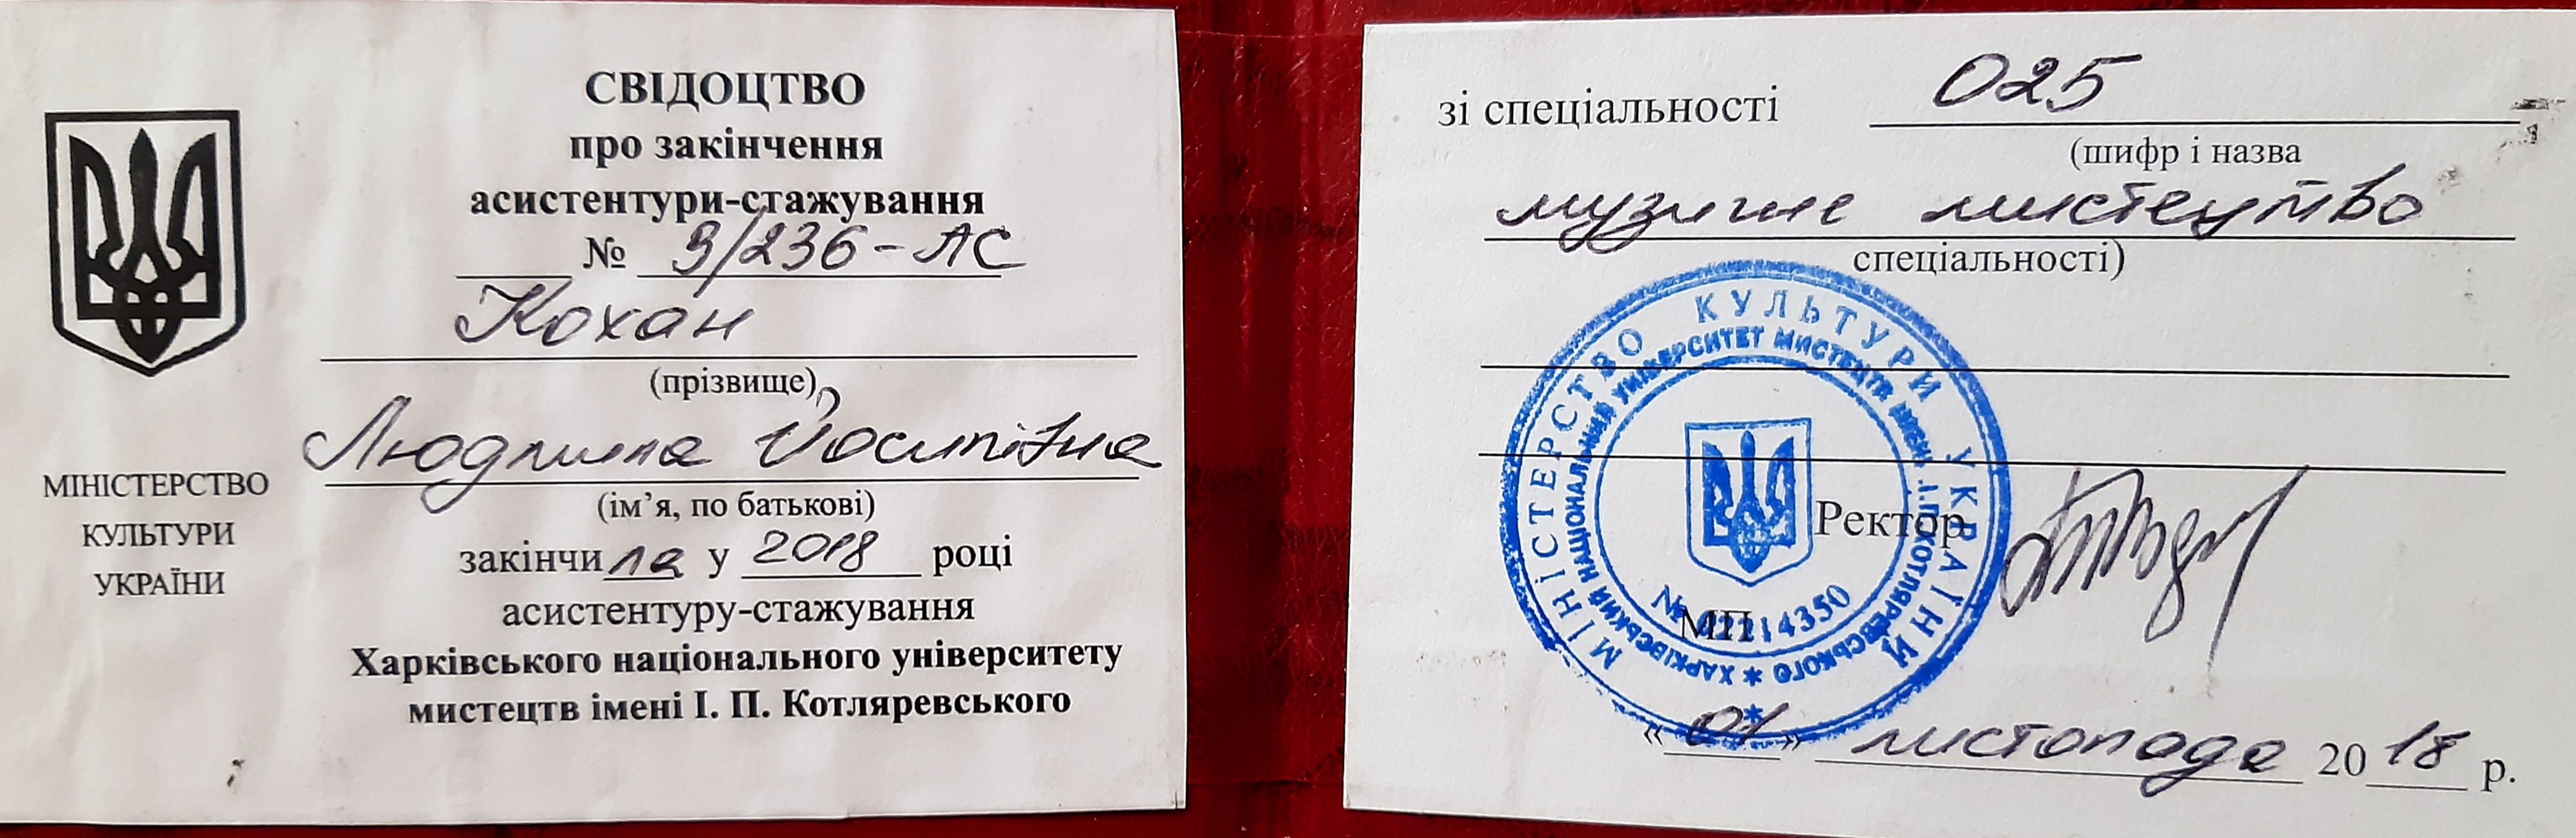 МІНІСТЕРСТВО
КУЛЬТУРИ
УКРАЇНИ
СВІДОЦТВО
про закінчення
асистентури-стажування
№ 9/236-АС
Кохан
(прізвище)
Людмила Йосипівна
(ім’я, по батькові)
закінчила у 2018 році
асистентуру-стажування
Харківського національного університету
мистецтв імені І. П. Котляревського
зі спеціальності 025
(шифр і назва
музичне мистецтво
спеціальності)
МІНІСТЕРСТВО КУЛЬТУРИ УКРАЇНИ
ХАРКІВСЬКИЙ НАЦІОНАЛЬНИЙ УНІВЕРСИТЕТ МИСТЕЦТВ ІМЕНІ І.П.КОТЛЯРЕВСЬКОГО
Ректор
№ 02214350
МП
« 01 » листопада 2018 р.